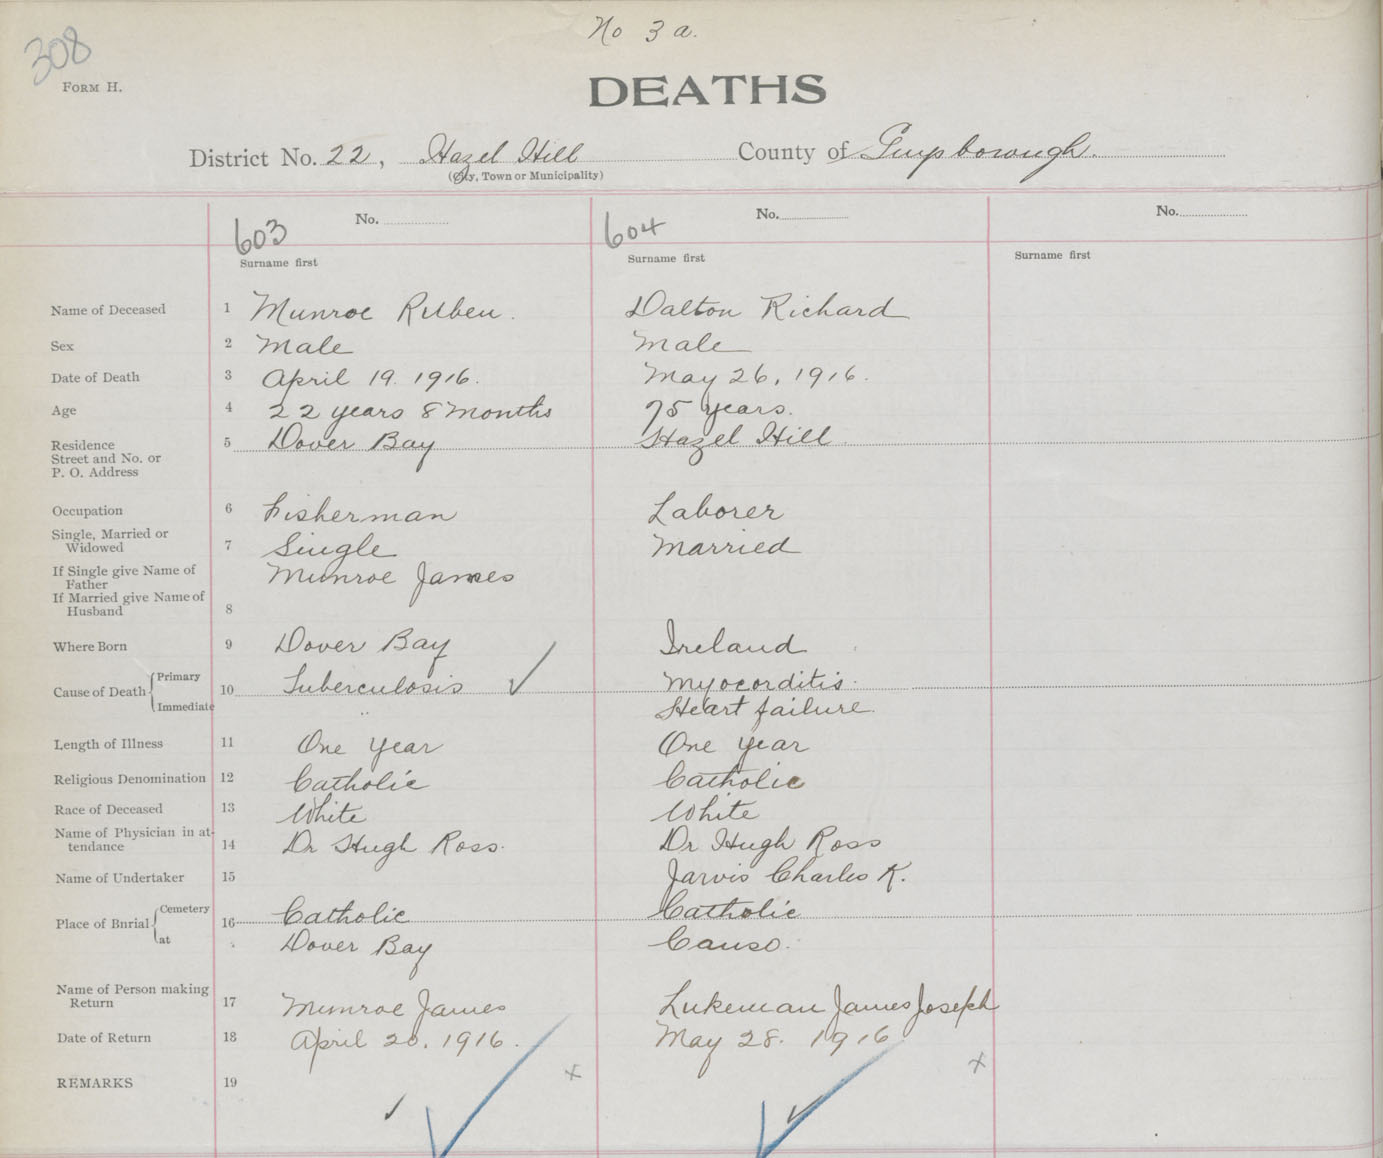 308
No 3 a.
FORM H.
DEATHS
District No. 22, Hazel Hill County of Guysborough.
(City, Town or Municipality)
603 No. 604 No. No.
Surname first Surname first Surname first
Name of Deceased 1 Munroe Ruben. Dalton Richard
Sex 2 Male Male
Date of Death 3 April 19. 1916. May 26, 1916.
Age 4 22 years 8 months 75 years.
Residence 5 Dover Bay Hazel Hill
Street and No. or
P. O. Address
Occupation 6 Fisherman Laborer
Single, Married or
Widowed 7 Single Married
If Single give Name of
Father Munroe James
If Married give Name of
Husband 8
Where Born 9 Dover Bay Ireland
Cause of Death Primary 10 Tuberculosis Myocorditis.
Immediate " Heart failure.
Length of Illness 11 One Year One Year
Religious Denomination 12 Catholic Catholic
Race of Deceased 13 White White
Name of Physician in at-
tendance 14 Dr Hugh Ross. Dr Hugh Ross
Name of Undertaker 15 Jarvis Charles K.
Place of Bnrial Cemetery 16 Catholic Catholic
at Dover Bay Canso.
Name of Person making
Return 17 Munroe James Lukeman James Joseph
Date of Return 18 April 20. 1916. May 28. 1916
REMARKS 19 x x